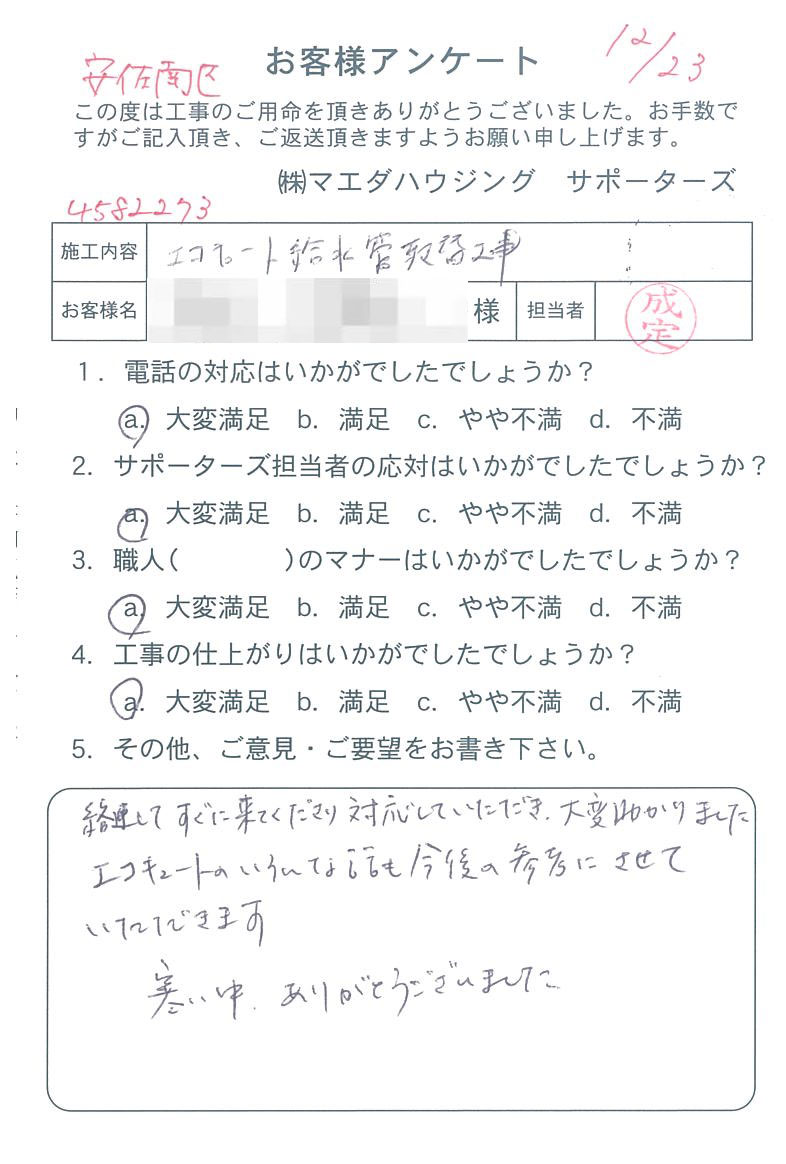 安佐南区
お客様アンケート
12/23
この度は工事のご用命を頂きありがとうございました。お手数で
すがご記入頂き、ご返送頂きますようお願い申し上げます。
㈱マエダハウジング サポーターズ
4582273
施工内容 エコキュート給水管取替工事
お客様名 様 担当者 成定
1. 電話の対応はいかがでしたでしょうか?
a. 大変満足 b. 満足 c. やや不満 d. 不満
2. サポーターズ担当者の応対はいかがでしたでしょうか?
a. 大変満足 b. 満足 c. やや不満 d. 不満
3. 職人( )のマナーはいかがでしたでしょうか?
a. 大変満足 b. 満足 c. やや不満 d. 不満
4. 工事の仕上がりはいかがでしたでしょうか?
a. 大変満足 b. 満足 c. やや不満 d. 不満
5. その他、ご意見・ご要望をお書き下さい。
絡連してすぐに来てくださり対応していただき、大変助かりました
エコキュートのいろんな話も今後の参考にさせて
いただきます
寒い中、ありがとうございました